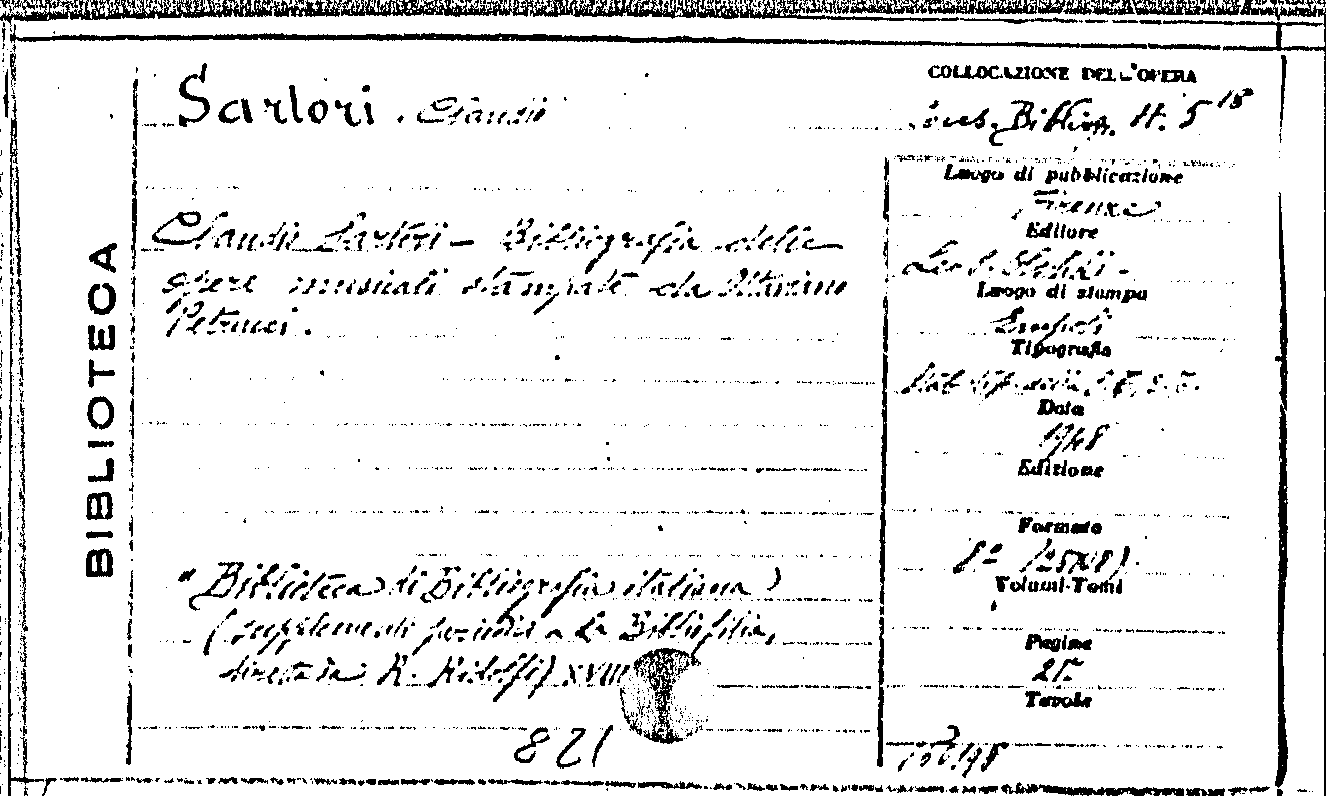 BIBLIOTECA
Sartori . Claudio
Claudio Sartori - Bibliografia delle
opere musicali stampate da Ottaviano
Petrucci.
"Biblioteca di Bibliografia italiana)
(supplementi periodici a La Bibliofilia,
diretta da R. Ridolfi) XVIII
821
COLLOCAZIONE DELL'OPERA
Bibliog. H. 5 18
Luogo di pubblicazione
Firenze
Editore
Leo S. Olschki -
Luogo di stampa
Empoli
Tipografia
Stab. tip.
Data
1948
Edizione
Formato
8º (25X18).
Volumi-Tomi
Pagine
Tavole